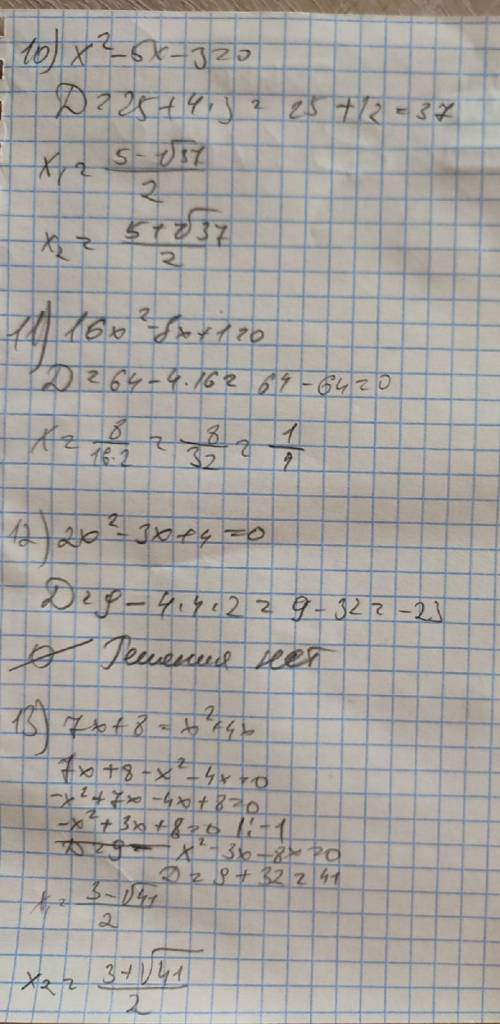 10) x² - 5x - 3 = 0
D = 25 + 4·3 = 25 + 12 = 37
x₁ = (5 - √37)/2
x₂ = (5 + √37)/2
11) 16x² - 8x + 1 = 0
D = 64 - 4·16 = 64 - 64 = 0
x = 8/(16·2) = 8/32 = 1/4
12) 2x² - 3x + 4 = 0
D = 9 - 4·4·2 = 9 - 32 = -23
Ø Решения нет
13) 7x + 8 = x² + 4x
7x + 8 - x² - 4x = 0
-x² + 7x - 4x + 8 = 0
-x² + 3x + 8 = 0 |: -1
D = 9 - x² - 3x - 8x = 0
D = 9 + 32 = 41
x₁ = (3 - √41)/2
x₂ = (3 + √41)/2